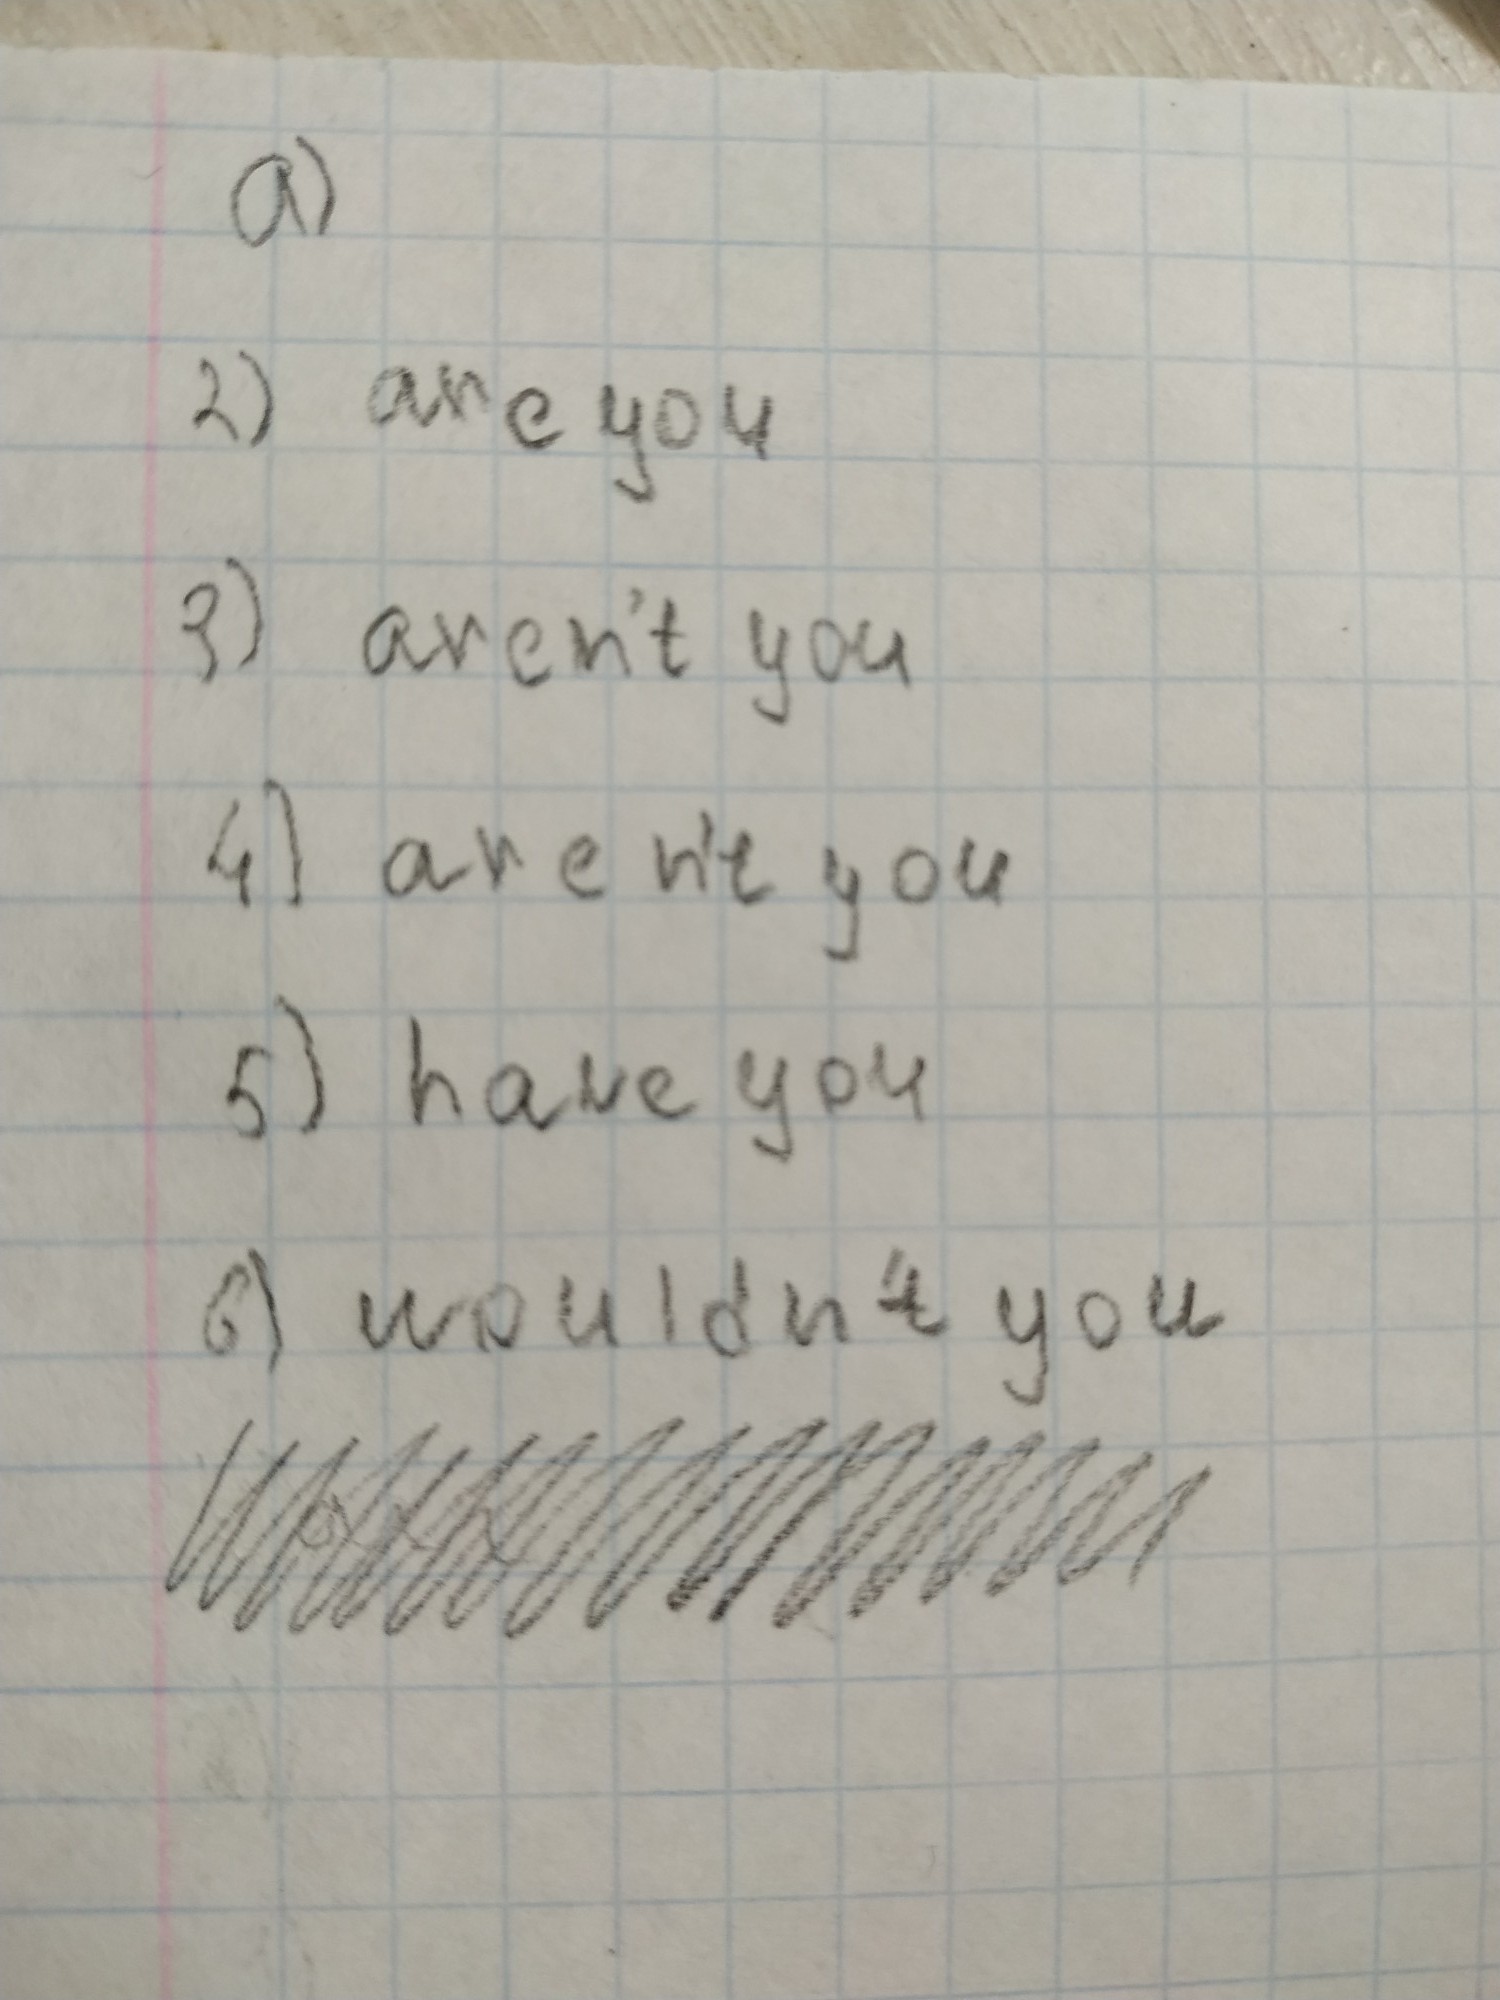 a)
2) are you
3) aren't you
4) aren't you
5) have you
6) wouldn't you